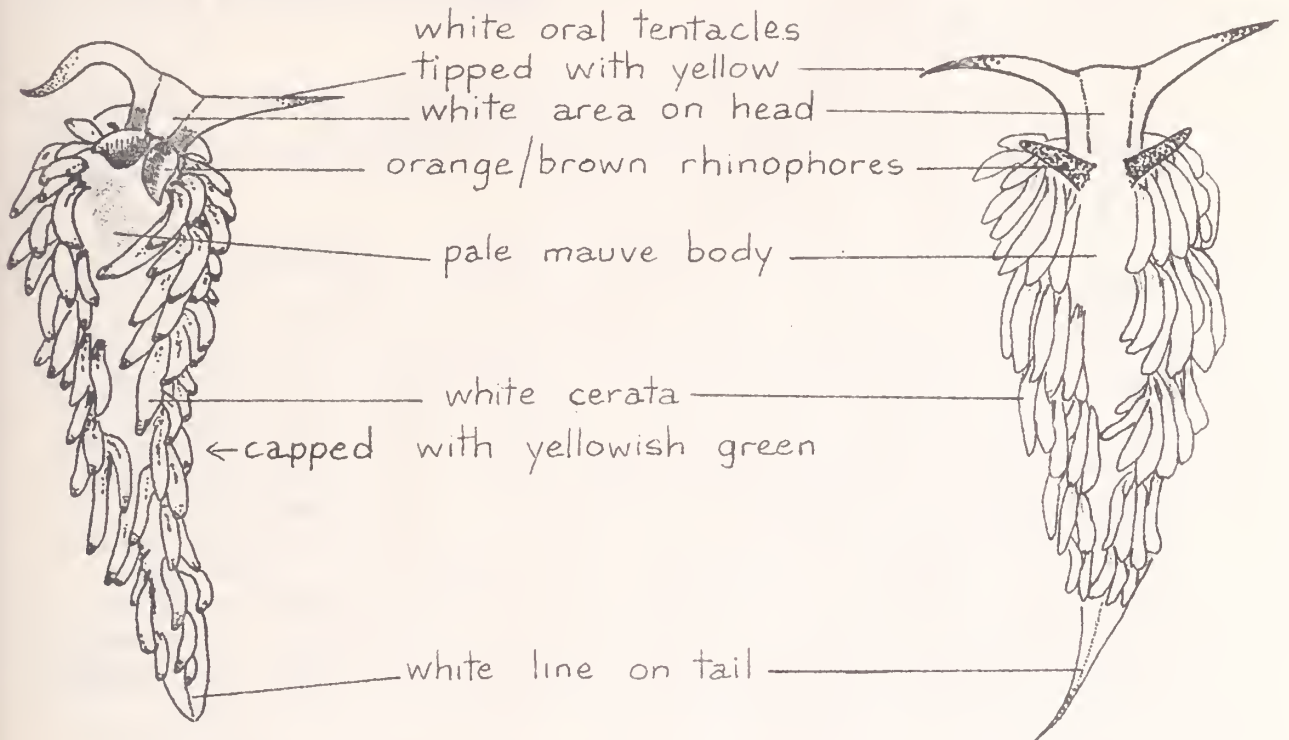 white oral tentacles
tipped with yellow
white area on head
orange/brown rhinophores
pale mauve body
white cerata
←capped with yellowish green
white line on tail